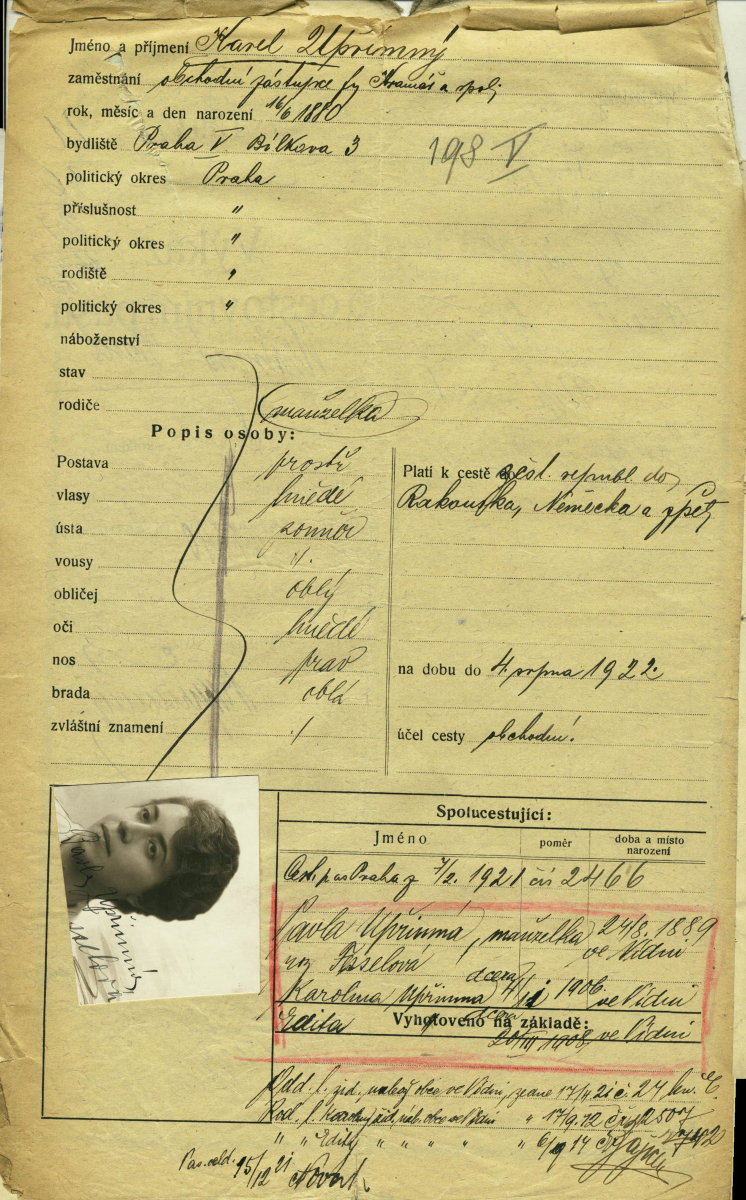 Jméno a příjmení Karel Upřimný
zaměstnání obchodní zástupce fy Kramář a spol.
rok, měsíc a den narození 16/6 1880
bydliště Praha V Bílkova 3
198 V
politický okres Praha
příslušnost "
politický okres "
rodiště "
politický okres "
náboženství
stav
rodiče
manželka
Popis osoby:
Postava prostř
vlasy hnědé
ústa souměr
vousy ·/.
obličej oblý
oči hnědé
nos prav
brada oblá
zvláštní znamení ·/
Platí k cestě čsl. republ. do
Rakouska, Německa a zpět
na dobu do 4. srpna 1922.
účel cesty obchodní.
Pavla Upřimná
Spolucestující:
Jméno poměr doba a místo narození
Cest. pas Praha z 7/2. 1921 čís 2466
Pavla Upřimná, manželka 24/8. 1889
roz. ve Vídni
Karolina Upřimná dcera 1906 ve Vídni
Edita dcera 1908, ve Vídni
Vyhotoveno na základě:
Odd. l. žid. nábož. obce ve Vídni, ze dne 17/4 21 č. 27
Rod. l. žid. náb. obce ve Vídni " 17/9. 12
" " Edity " " " "
15/12 21